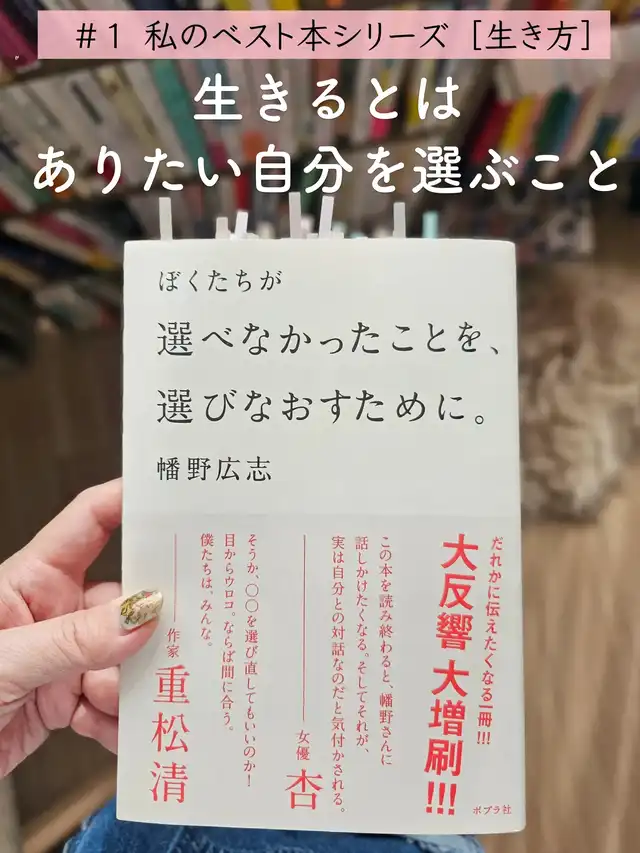 #1 私のベスト本シリーズ［生き方］
生きるとは
ありたい自分を選ぶこと
ぼくたちが
選べなかったことを、
選びなおすために。
幡野広志
だれかに伝えたくなる一冊!!!
大反響 大増刷!!!
ポプラ社
この本を読み終わると、幡野さんに
話しかけたくなる。そしてそれが、
実は自分との対話なのだと気付かされる。
女優 杏
そうか、〇〇を選び直してもいいのか！
目からウロコ。ならば間に合う。
僕たちは、みんな。
作家 重松清